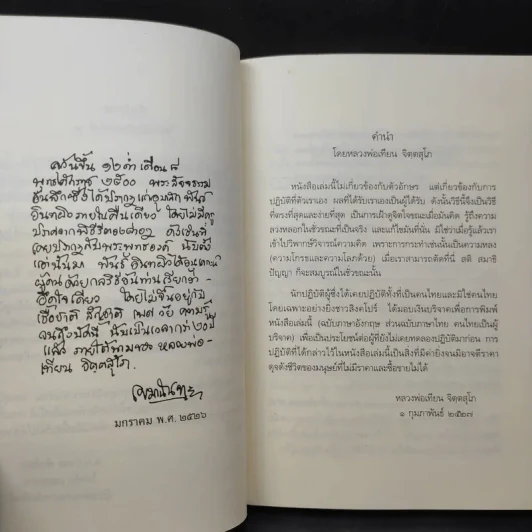 วันขึ้น ๑๒ ค่ำ เดือน ๘
พุทธศักราช ๒๕๐๐ พระสัจธรรม
อันลึกซึ้งได้ปรากฏแก่อุบาสก พันธ์
อินทผิว ภายในคืนเดียว โดยไม่มีครู
ปราศจากพิธีรีตองใดๆ
เคยปรากฏกับพระพุทธองค์ นับตั้ง
แต่นั้นมา พันธ์ อินทผิว
ผู้คนด้วยกลวิธีอันท่านเรียกว่า
โดยไม่ขึ้นอยู่กับ
เชื้อชาติ ลัทธิ เพศ วัย ความรู้
จนถึงบัดนี้ นับเป็นเวลากว่า ๒๐ ปี
แล้ว ภายใต้นามของ หลวงพ่อ-
เทียน จิตฺตสุโภ
มกราคม พ.ศ. ๒๕๒๖
คำนำ
โดยหลวงพ่อเทียน จิตฺตสุโภ
หนังสือเล่มนี้ไม่เกี่ยวข้องกับตัวอักษร แต่เกี่ยวข้องกับการ
ปฏิบัติที่ตัวเราเอง ผลที่ได้รับเราเองเป็นผู้ได้รับ ดังนั้นวิธีนี้จึงเป็นวิธี
ที่ตรงที่สุดและง่ายที่สุด เป็นการเฝ้าดูจิตใจขณะเมื่อมันคิด รู้ถึงความ
ลวงหลอกในชั่วขณะที่เป็นจริง และแก้ไขมันที่นั่น มิใช่ว่าเมื่อรู้แล้วเรา
เข้าไปวิพากษ์วิจารณ์ความคิด เพราะการกระทำเช่นนั้นเป็นความหลง
(ความโกรธและความโลภด้วย) เมื่อเราสามารถตัดที่นี่ สติ สมาธิ
ปัญญา ก็จะสมบูรณ์ในชั่วขณะนั้น
นักปฏิบัติผู้ซึ่งได้เคยปฏิบัติทั้งที่เป็นคนไทยและมิใช่คนไทย
โดยเฉพาะอย่างยิ่งชาวสิงคโปร์ ได้มอบเงินบริจาคเพื่อการพิมพ์
หนังสือนี้ (ฉบับภาษาอังกฤษ ส่วนฉบับภาษาไทย คนไทยเป็นผู้
บริจาค) เพื่อเป็นประโยชน์ต่อผู้ที่ยังไม่เคยทดลองปฏิบัติมาก่อน การ
ปฏิบัติที่ได้กล่าวไว้ในหนังสือเล่มนี้เป็นสิ่งที่มีค่ายิ่งจนมิอาจตีราคา
ดุจดังชีวิตของมนุษย์ที่ไม่มีราคาและซื้อขายไม่ได้
หลวงพ่อเทียน จิตฺตสุโภ
๑ กุมภาพันธ์ ๒๕๒๗